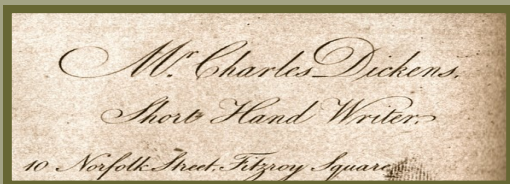 Mr. Charles Dickens.
Short Hand Writer.
10 Norfolk Street, Fitzroy Square